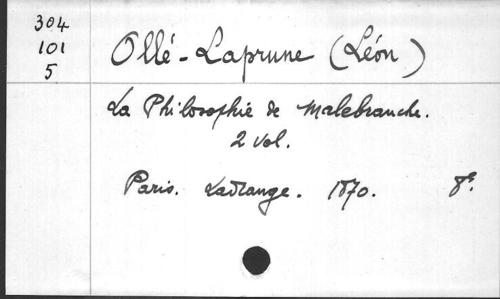 304
101
5
Ollé-Laprune (Léon)
La Philosophie de Malebranche.
2 vol.
Paris. Ladrange. 1870. 8º.